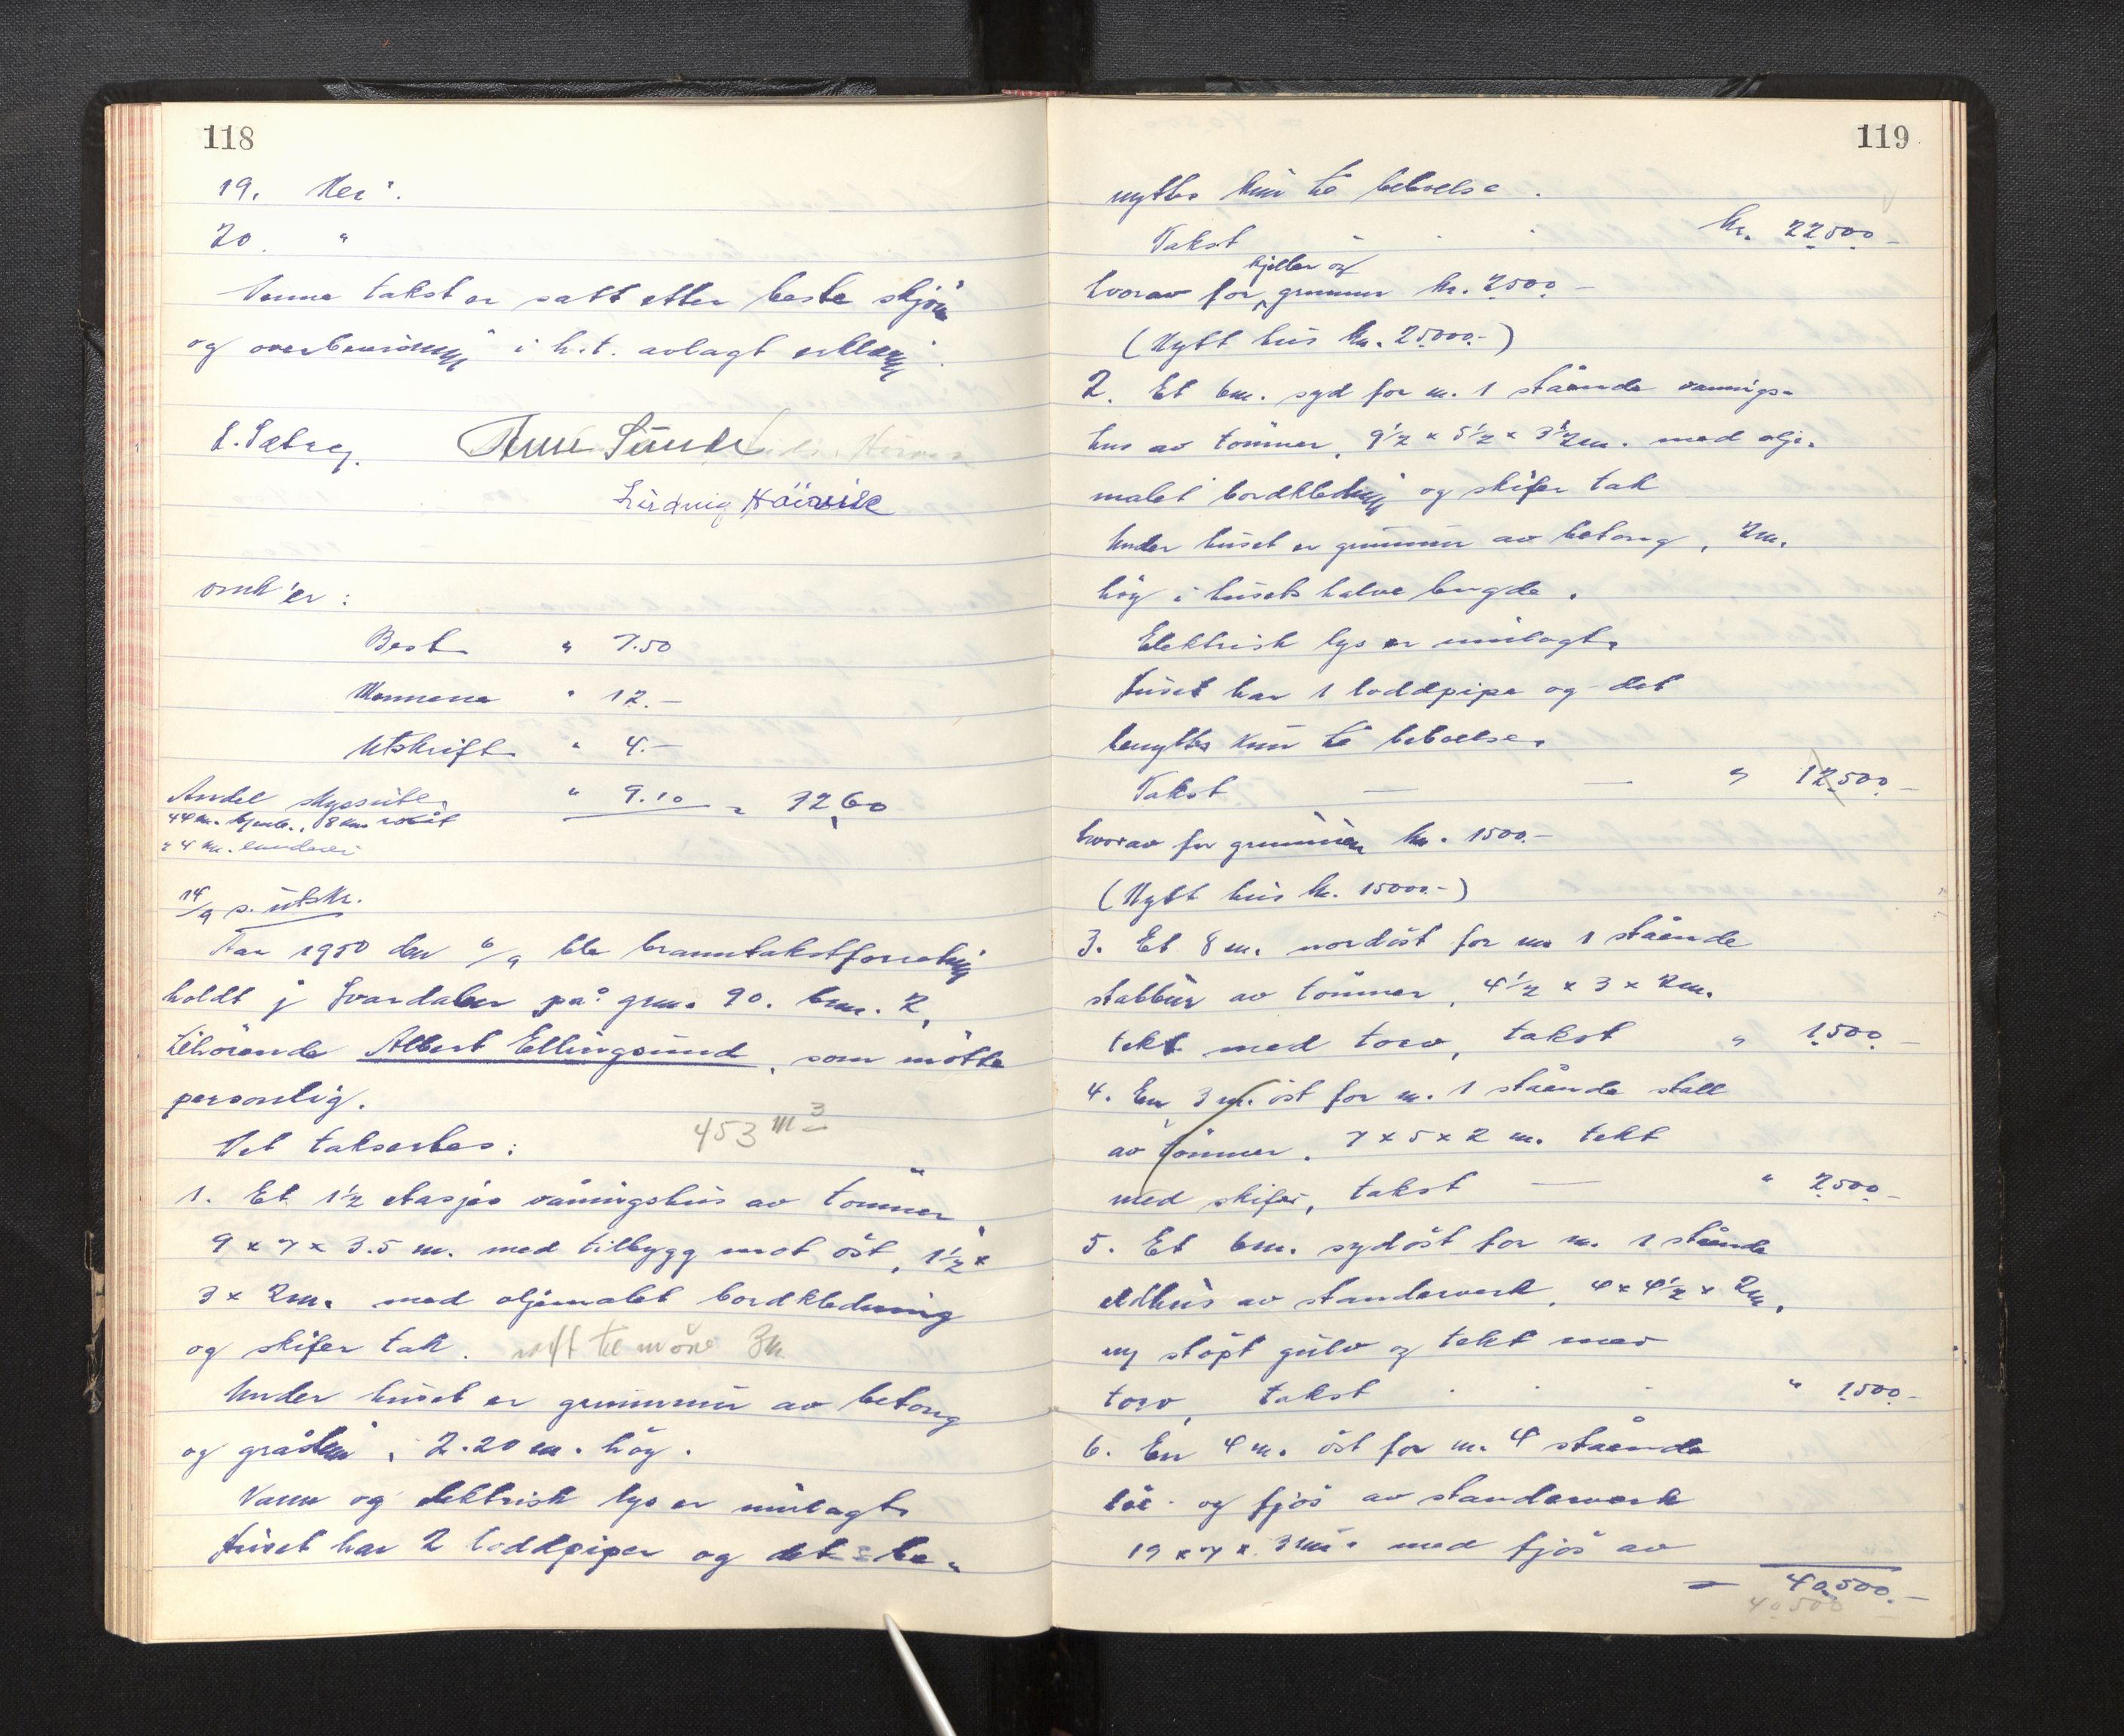 118
19. Nei.
20. "
Denne takst er satt etter beste skjön
og overbevisning i h.t. avlagt erklæring.
L. Sætre.
Ludvig Höivik
omk'er:
Best. " 7.50
Mennene " 12.—
Utskrift " 4.—
Andel skyssutl. " 9.10 = 32.60
14/9 s. utskr.
Aar 1950 den 6/9 ble branntakstforretning
holdt i Svardalen på grn. 90. brn. 2,
tilhörende Albert Ellingsund, som mötte
personlig.
453 m3
Det taksertes:
1. Et 1½ etasjes våningshus av tömmer,
9 x 7 x 3.5 m. med tilbygg mot öst, 1½ x
3 x 2m. med oljemalet bordkledning
og skifer tak. loft til möne 3m
Under huset er grunnmur av betong
og gråsten, 2.20 m. höy.
Vann og elektrisk lys er innlagt.
Huset har 2 loddpiper og det be-
119
nyttes kun til beboelse.
Takst kr. 22500.—
hvorav for kjeller og grunnmur kr. 2500.—
(Nytt hus kr. 25000.-)
2. Et 6m. syd for nr. 1 stående vånings-
hus av tömmer, 9½ x 5½ x 3½m. med olje-
malet bordkledning og skifer tak
Under huset er grunnmur av betong, 2m.
höy i husets halve lengde.
Elektrisk lys er innlagt.
Huset har 1 loddpipe og det
benyttes kun til beboelse.
Takst — — " 12500.—
hvorav for grunnmur kr. 1500.—
(Nytt hus kr. 15000.-)
3. Et 8 m. nordöst for nr 1 stående
stabbur av tömmer, 4½ x 3 x 2m.
tekt med torv, takst " 1500.—
4. En 3 m. öst for nr. 1 stående stall
av tömmer, 7 x 5 x 2 m. tekt
med skifer, takst — " 2500.—
5. Et 6m. sydöst for nr. 1 stående
eldhus av standerverk, 4 x 4½ x 2m,
m/ stöpt gulv og tekt med
torv, takst " 1500.—
6. En 4 m. öst for nr. 4 stående
löe- og fjös av standerverk
19 x 7 x 3m. med fjös av
= 40.500.—
40.500